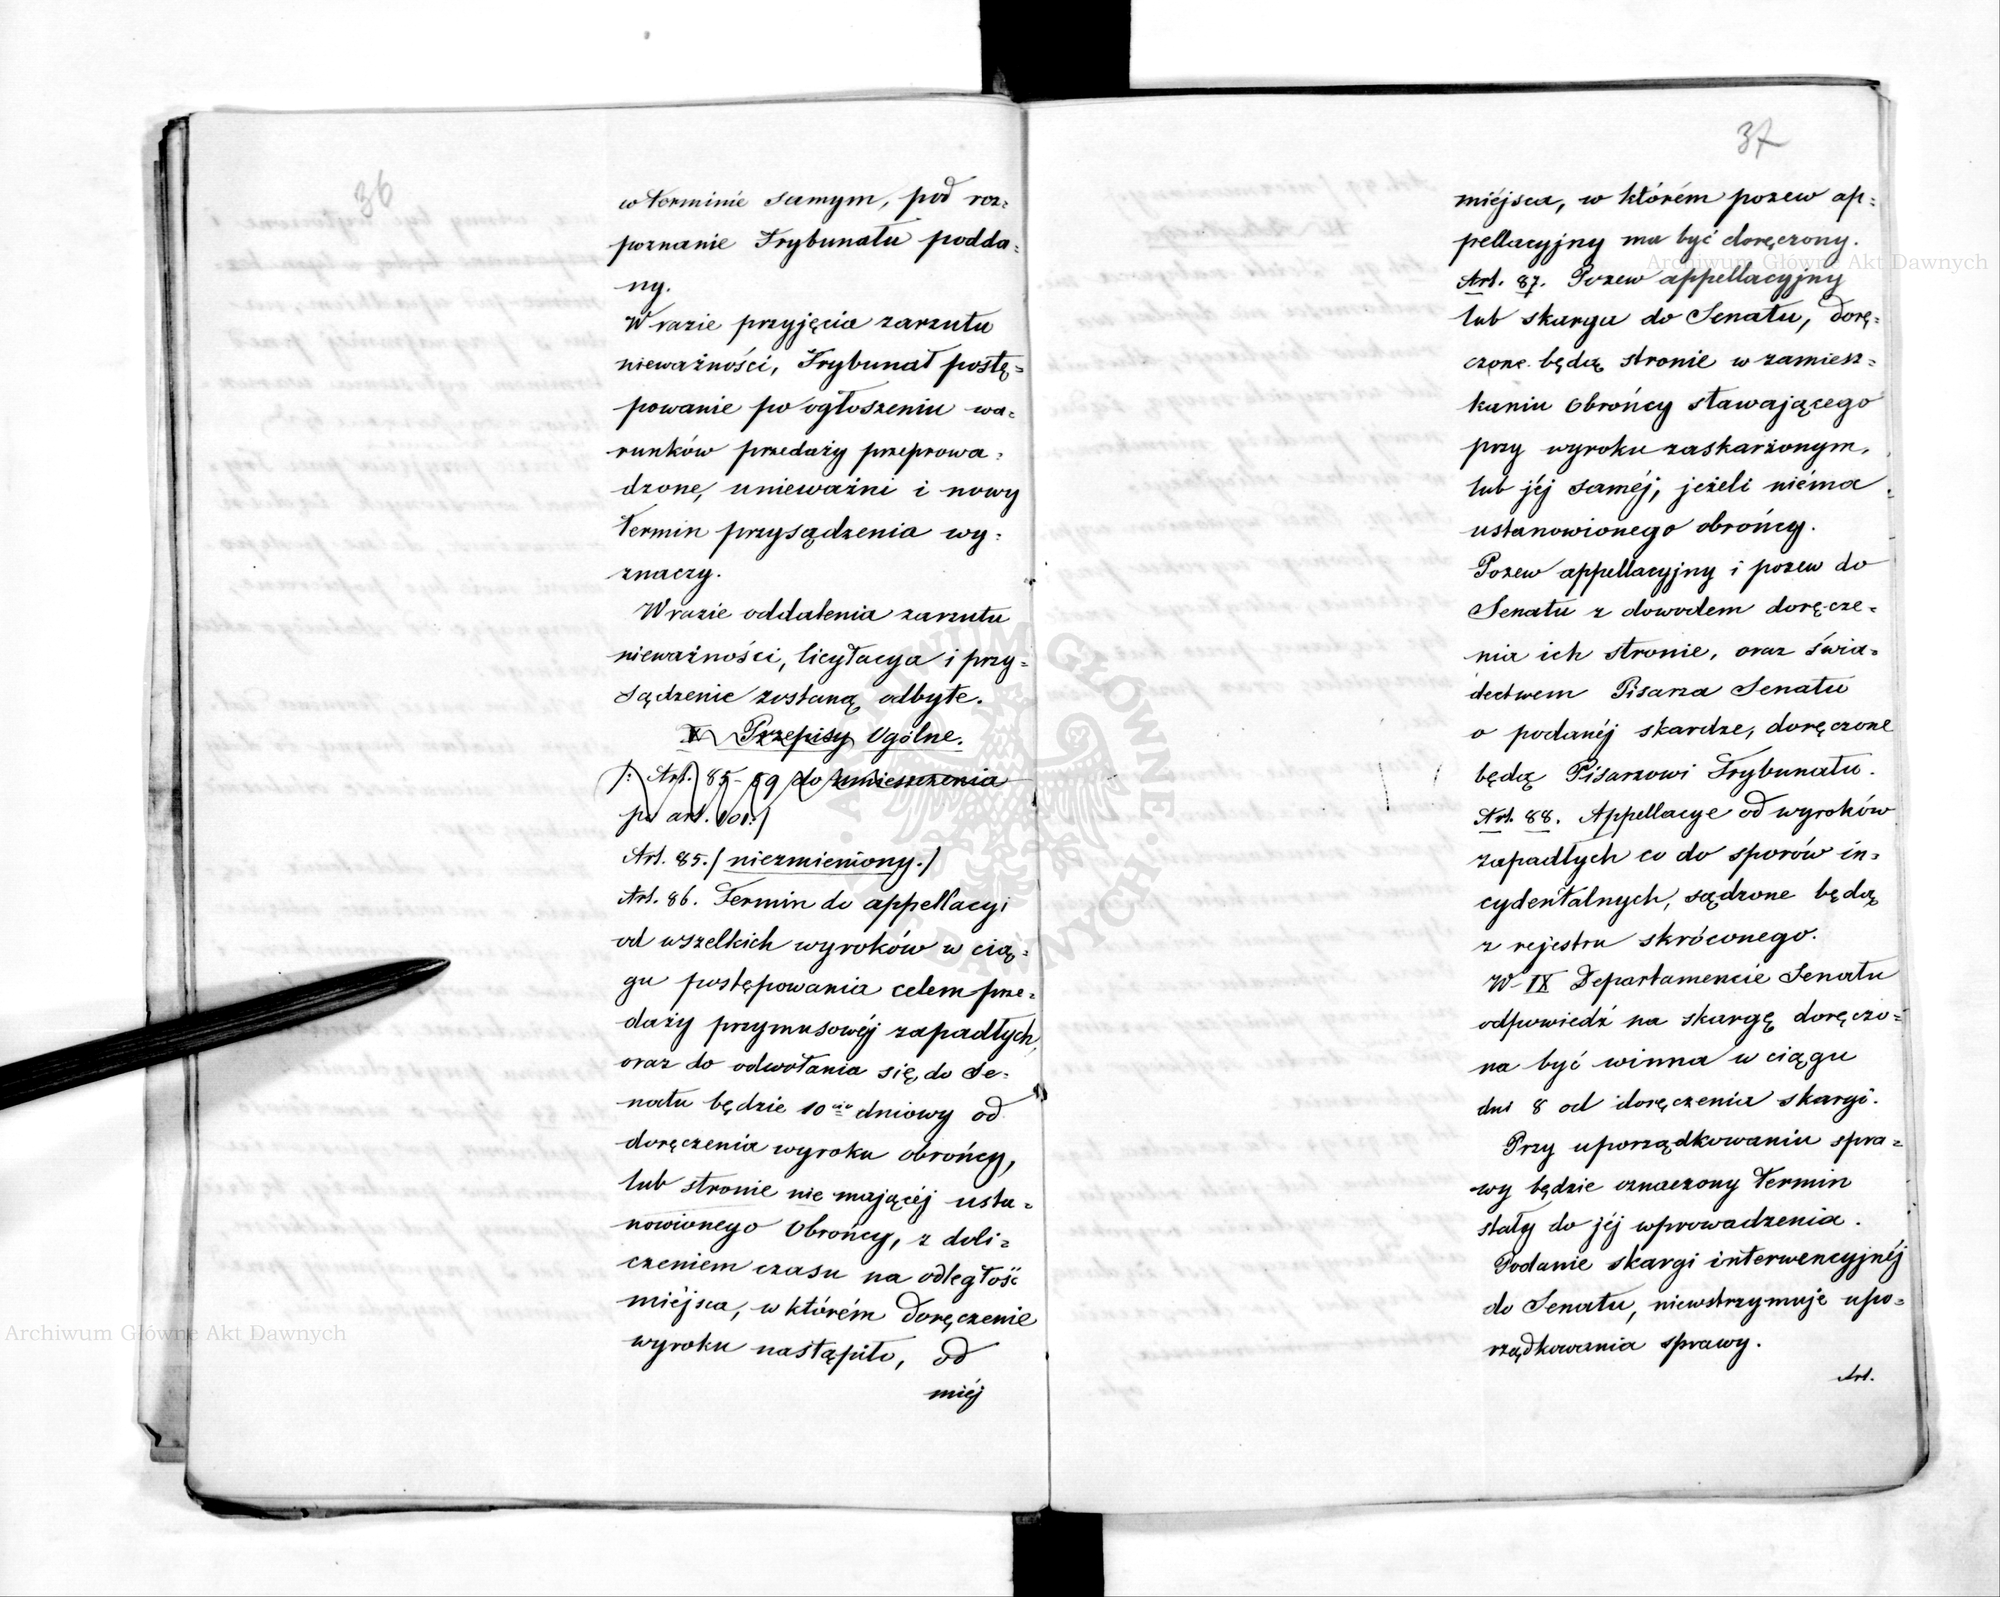 36
w terminie samym, pod roz=
poznanie Trybunału podda=
ny.
W razie przyjęcia zarzutu
nieważności, Trybunał postę=
powanie po ogłoszeniu wa=
runków przedaży przeprowa=
dzone, unieważni i nowy
termin przysądzenia wy=
znaczy.
W razie oddalenia zarzutu
nieważności, licytacya i przy=
sądzenie zostaną odbyte.
X Przepisy Ogólne.
/: Art. 85-99 do umieszczenia
po art. 101:/
Art. 85. / niezmieniony./
Art. 86. Termin do appellacyi
od wszelkich wyroków w cią=
gu postępowania celem prze=
daży przymusowéj zapadłych,
oraz do odwołania się do Se=
natu będzie 10cio dniowy od
doręczenia wyroku obrońcy,
lub stronie nie mającéj usta=
nowionego Obrońcy, z doli=
czeniem czasu na odległość
miéjsca, w którém doręczenie
wyroku nastąpiło, od
miéj
37
miéjsca, w którém pozew ap=
pellacyjny ma być doręczony.
Art. 87. Pozew appellacyjny
lub skarga do Senatu, dorę=
czone będą stronie w zamiesz=
kaniu Obrońcy stawającego
przy wyroku zaskarżonym,
lub jéj saméj, jeżeli niéma
ustanowionego obrońcy.
Pozew appellacyjny i pozew do
Senatu z dowodem doręcze=
nia ich stronie, oraz świa=
dectwem Pisarza Senatu
o podanéj skardze, doręczone
będą Pisarzowi Trybunału.
Art. 88. Appellacye od wyroków
zapadłych co do sporów in=
cydentalnych, sądzone będą
z rejestru skróconego.
W IX Departamencie Senatu
odpowiedź na skargę doręczo=
na być winna w ciągu
dni 8 od doręczenia skargi.
Przy uporządkowaniu spra=
wy będzie oznaczony termin
stały do jéj wprowadzenia.
Podanie skargi interwencyjnéj
do Senatu, niewstrzymuje upo=
rządkowania sprawy.
Art.
Archiwum Główne Akt Dawnych
Archiwum Główne Akt Dawnych
ARCHIWUM GŁÓWNE AKT DAWNYCH